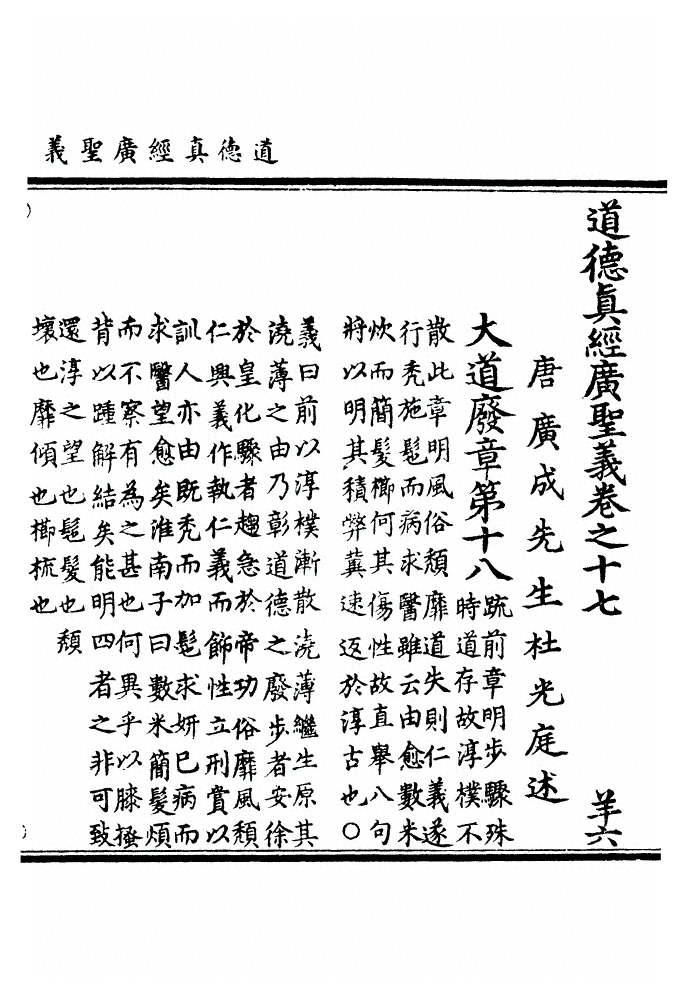 道德真經廣聖義
道德眞經廣聖義卷之十七　羊六
唐廣成先生杜光庭述
大道廢章第十八
疏前章明步驟殊
時道存故淳樸不
散此章明風俗頹靡道失則仁義遂
行禿施髢而病求醫雖云由愈數米
炊而簡髮櫛何其傷性故直舉八句
將以明其積弊冀速返於淳古也○
義曰前以淳樸漸散澆薄繼生原其
澆薄之由乃彰道德之廢步者安徐
於皇化驟者趨急於帝功俗靡風頹
仁興義作執仁義而飾性立刑賞以
訓人亦由既禿而加髢求妍已病而
求醫望愈矣淮南子曰數米簡髮煩
而不察有為之甚也何異乎以膝搔
背以踵解結矣能明四者之非可致
還淳之望也髢髮也頹
壞也靡傾也櫛梳也